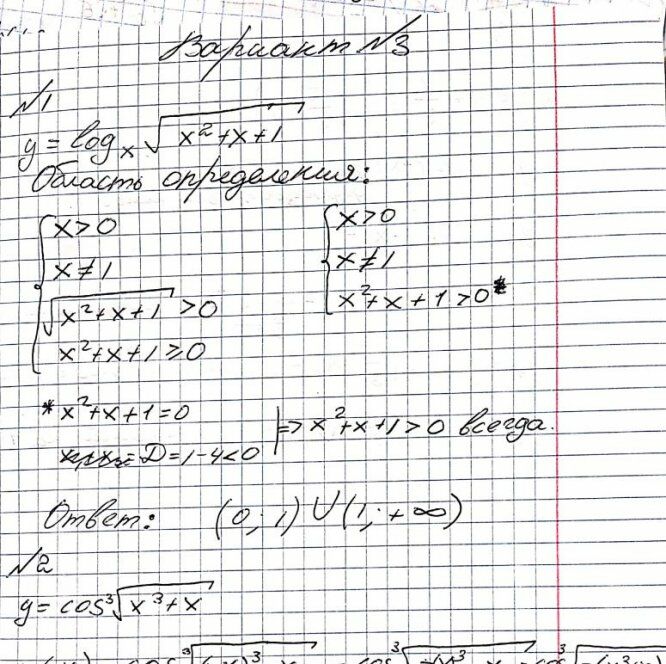 Вариант №3
№1
y = log_x √(x²+x+1)
Область определения:
{ x>0
x≠1
√(x²+x+1) >0
x²+x+1≥0
{ x>0
x≠1
x²+x+1>0 *
* x²+x+1=0
D=1-4<0
|=> x²+x+1>0 всегда.
Ответ: (0; 1) ∪ (1; +∞)
№2
y = cos ³√(x³+x)